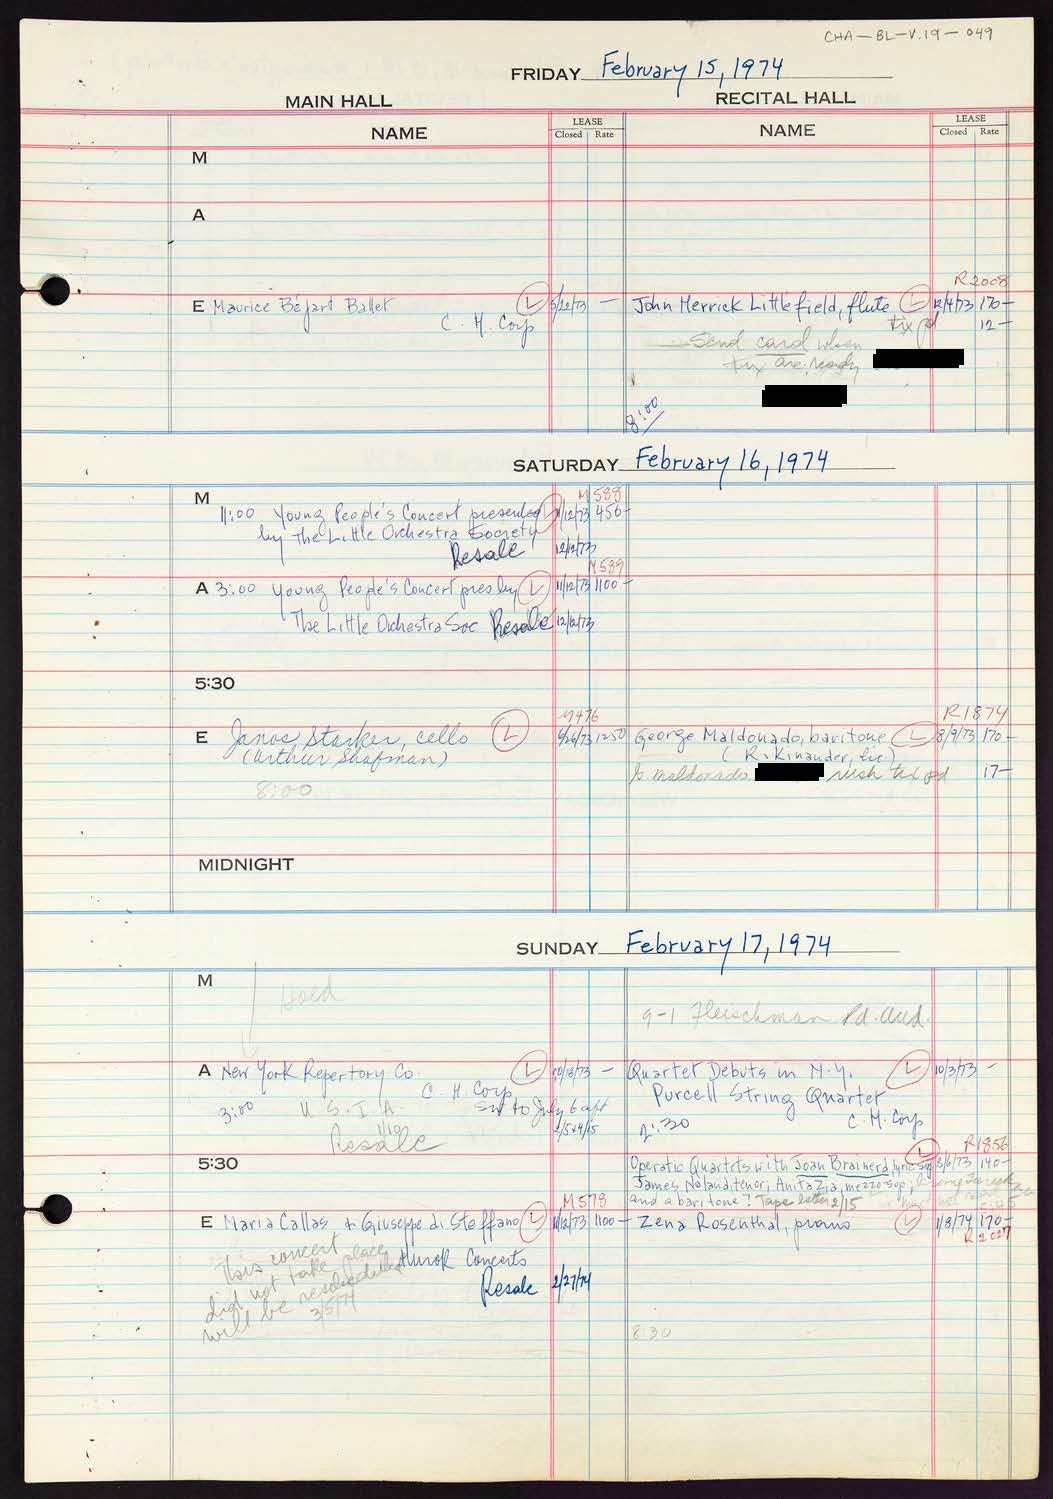 CHA-BL-V.19-049
FRIDAY February 15, 1974
MAIN HALL RECITAL HALL
NAME LEASE Closed Rate NAME LEASE Closed Rate
M
A
R2008
E Maurice Béjart Ballet L 5/22/73 — John Herrick Littlefield, flute L 12/4/73 170—
C. H. Corp tix pd 12—
Send card when
tix are ready
8:00
SATURDAY February 16, 1974
M M588
11:00 Young People's Concert presented 11/12/73 450—
by The Little Orchestra Society
Resale 12/12/73
M589
A 3:00 Young People's Concert pres by L 11/12/73 1100—
The Little Orchestra Soc Resale 12/12/73
5:30
M476 R1874
E Janos Starker, cello L 9/26/73 1250 George Maldonado, baritone L 8/9/73 170—
(Arthur Shafman) (R. Kinauder, Inc.)
maldonado wish tax pd 17—
8:00
MIDNIGHT
SUNDAY February 17, 1974
M
Hold
9-1 Fleischman Pd. Aud.
A New York Repertory Co. L 10/18/73 — Quartet Debuts in N.Y. L 10/3/73 —
C. H. Corp Purcell String Quartet
3:00 U.S.I.A. Ext to July 6 aft C. H. Corp
1/10 2/5 4/15 2:30
Resale
R1856
5:30 Operatic Quartets with Joan Brainerd, lyric sop L 8/6/73 140—
James Noland, tenor, Anita Zia, mezzo sop,
and a baritone? Tape letter 2/15 5:45
M578
E Maria Callas & Giuseppe di Steffano L 11/12/73 1100— Zena Rosenthal, piano L 1/8/74 170—
R2027
This concert Hurok Concerts
did not take place
will be rescheduled Resale 2/27/74
3/5/74
8:30